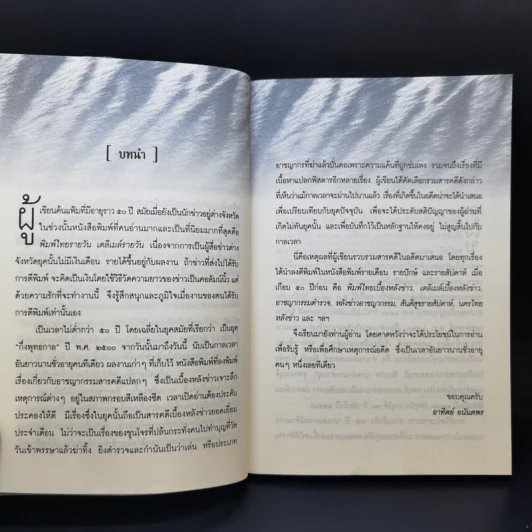 [ บทนำ ]
ผู้เขียนค้นแฟ้มที่มีอายุราว ๕๐ ปี สมัยเมื่อยังเป็นนักข่าวอยู่ต่างจังหวัด
ในช่วงนั้นหนังสือพิมพ์ที่คนอ่านมากและเป็นที่นิยมมากที่สุดคือ
พิมพ์ไทยรายวัน เดลิเมล์รายวัน เนื่องจากการเป็นผู้สื่อข่าวต่าง
จังหวัดยุคนั้นไม่มีเงินเดือน รายได้ขึ้นอยู่กับผลงาน ถ้าข่าวที่ส่งไปได้รับ
การตีพิมพ์ จะคิดเป็นเงินโดยใช้วิธีวัดความยาวของข่าวเป็นคอลัมน์นิ้ว แต่
ด้วยความรักที่จะทำงานนี้ จึงรู้สึกสนุกและภูมิใจเมื่องานของตนได้รับ
การตีพิมพ์เท่านั้นเอง
เป็นเวลาไม่ต่ำกว่า ๕๐ ปี โดยเฉลี่ยในยุคสมัยที่เรียกว่า เป็นยุค
"กึ่งพุทธกาล" ปี พ.ศ. ๒๕๐๐ จากวันนั้นมาถึงวันนี้ นับเป็นกาลเวลา
อันยาวนานชั่วอายุคนทีเดียว ผลงานเก่าๆ ที่เก็บไว้ หนังสือพิมพ์ที่ลงพิมพ์
เรื่องเกี่ยวกับอาชญากรรมสารคดีแปลกๆ ซึ่งเป็นเบื้องหลังข่าวเจาะลึก
เหตุการณ์ต่างๆ อยู่ในสภาพกรอบสีเหลืองซีด เวลาเปิดอ่านต้องประคับ
ประคองให้ดี มีเรื่องซึ่งในยุคนั้นถือเป็นสารคดีเบื้องหลังข่าวยอดเยี่ยม
ประจำเดือน ไม่ว่าจะเป็นเรื่องของขุนโจรที่ปล้นกระทั่งคนไปทำบุญที่วัด
วันเข้าพรรษาแล้วฆ่าทิ้ง ยิงตำรวจและกำนันเป็นว่าเล่น หรือประเภท
อาชญากรที่ฆ่าแล้วบั่นคอเพราะความแค้นที่ถูกข่มเหง รวมจนถึงเรื่องที่มี
เนื้อหาแปลกพิสดารอีกหลายเรื่อง ผู้เขียนได้คัดเลือกรวมสารคดีดังกล่าว
ที่เห็นว่าแม้กาลเวลาจะผ่านไปนานแล้ว เรื่องที่เกิดขึ้นในอดีตน่าจะได้นำเสนอ
เพื่อเปรียบเทียบกับยุคปัจจุบัน เพื่อจะได้ประดับสติปัญญาของผู้อ่านที่
เกิดไม่ทันยุคนั้น และเพื่อบันทึกไว้เป็นหลักฐานให้คงอยู่ ไม่สูญสิ้นไปกับ
กาลเวลา
นี่คือเหตุผลที่ผู้เขียนรวบรวมสารคดีในอดีตมาเสนอ โดยทุกเรื่อง
ได้นำลงตีพิมพ์ในหนังสือพิมพ์รายเดือน รายปักษ์ และรายสัปดาห์ เมื่อ
เกือบ ๕๐ ปีก่อน คือ พิมพ์ไทยเบื้องหลังข่าว, เดลิเมล์เบื้องหลังข่าว,
อาชญากรรมตำรวจ, หลังข่าวอาชญากรรม, สันติสุขรายสัปดาห์, นครไทย
หลังข่าว และ ฯลฯ
จึงเรียนมายังท่านผู้อ่าน โดยคาดหวังว่าจะได้ประโยชน์ในการอ่าน
เพื่อรับรู้ หรือเพื่อศึกษาเหตุการณ์อดีต ซึ่งเป็นเวลาอันยาวนานชั่วอายุ
คนๆ หนึ่งเลยทีเดียว
ขอบคุณครับ
อาทิตย์ อนันตพร